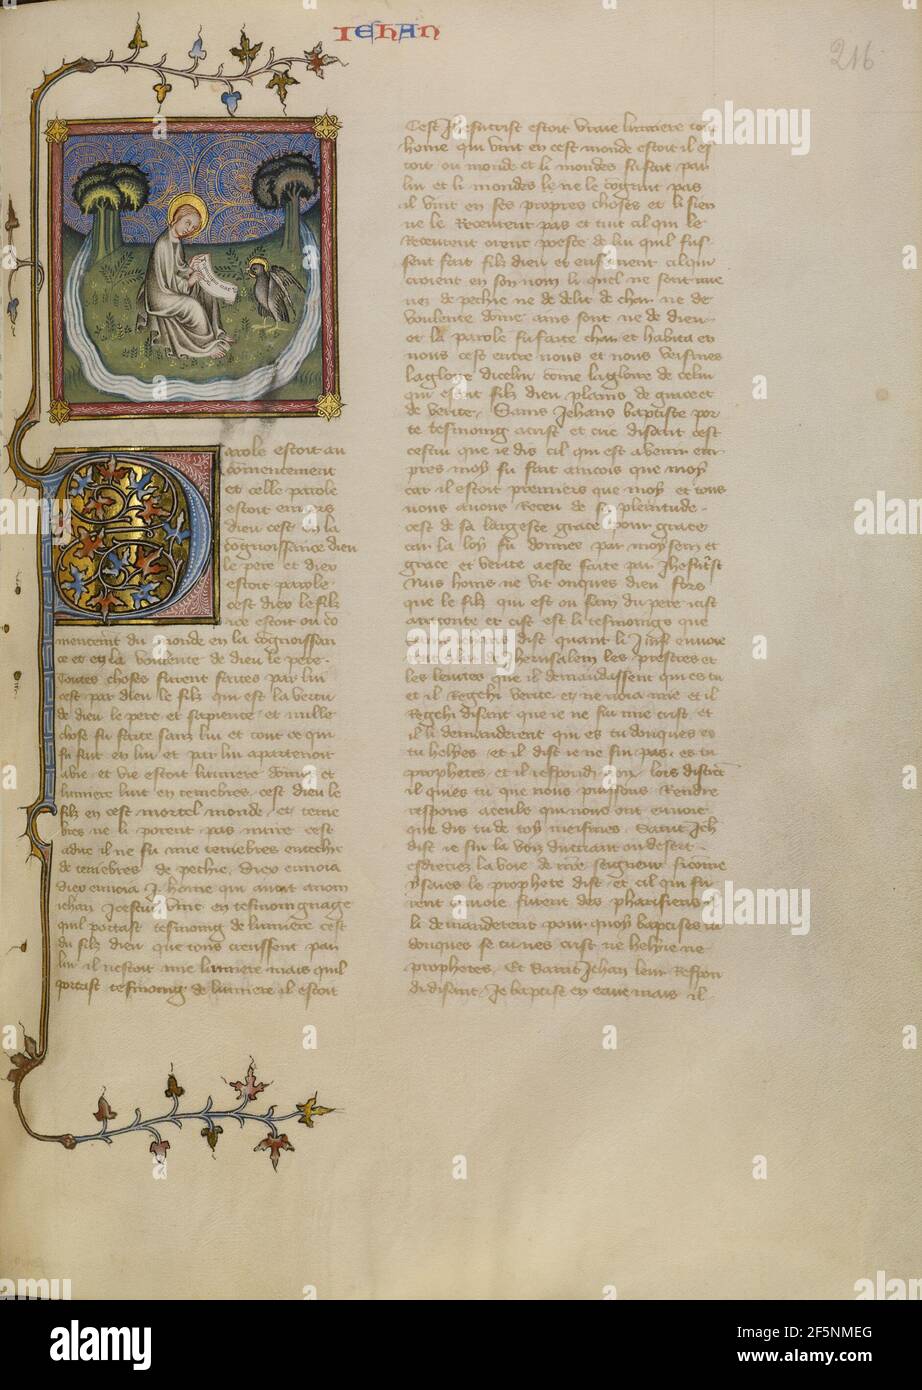 IEHAN
216
arole estoit au
comencement
et celle parole
estoit envers
dieu cest en la
cognoissance dieu
le pere et diex
estoit parole
cest diex le filz
ice estoit ou co
mencemt du monde en la cognoissan
ce et en la voulente de dieu le pere
Toutes choses furent faites par lui
cest par dieu le filz qui est la vertu
de dieu le pere et sapience et nulle
chose fu faite sanz lui et tout ce qui
fu fait en lui et par lui apartenoit
a vie et vie estoit lumiere dome et
lumiere luit en tenebres cest dieu le
filz en cest mortel monde et tene
bres ne li porent pas nuire cest
adire il ne fu mie tenebres entechie
de tenebres de pechie diex envoia
diex envoia j. home qui avoit a nom
iehan Icestui vint en tesmoingnage
quil portast tesmoing de lumiere cest
du filz dieu que tous creussent par
lui il nestoit mie lumiere mais quil
portast tesmoing de lumiere il estoit
Cest Jhesucrist estoit vraie lumiere tout
home qui vint en cest monde estoit il es
toit ou monde et li mondes fu fait par
lui et li mondes le ne le cognut pas
il vint en ses propres choses et li sien
ne le Receurent pas et tuit cil qui le
Receurent orent poeste de lui quil fus
sent fait filz dieu et cil qui
croient en son nom li quel ne sont mie
nez de pechie ne de delit de char ne de
voulente dome ains sont ne de dieu
et la parole fu faite char et habita en
nous cest entre nous et nous veismes
la gloire dicelui come la gloire de celui
qui estoit filz dieu plains de grace et
de verite. Sains Jehans baptiste por
te tesmoing a crist et crie disant cest
cestui que je dis cil qui est a venir en
pres moy fu fait aincois que moy
car il estoit premiers que moy et tous
nous avons Receu de sa plentude
cest de sa largesce grace pour grace
car la loy fu donnee par moysem et
grace et verite a este faite par Jhesucrist
Nus homs ne vit onques dieu fors
que le filz qui est ou sain du pere cist
a raconte et cist est li tesmoings que
dist quant li Juif envoie
de Jherusalem les prestres et
les levites que il demandassent qui es tu
et il Regehi verite et ne noia mie et il
Regehi disant que je ne sui mie crist et
il li demanderent qui es tu donques es
tu helyes et il dist je ne sui pas es tu
prophetes et il respondi non lors distrent
il qui es tu que nous puissons Rendre
respons a ceuls qui nous ont envoie
que dis tu de toy meismes. Saint Jeh
dist je sui la voiz du criant ou desert
esdreciez la voie de nostre seigneur si come
ysaies le prophete dist et cil qui fu
rent envoie furent des pharisiens
li demanderent pour quoy baptises tu
donques se tu nes crist ne helye ne
prophetes. Et Saint Jehan leur Respon
di disant. Je baptise en eaue mais il
alamy
Image ID: 2F5NMEG
www.alamy.com